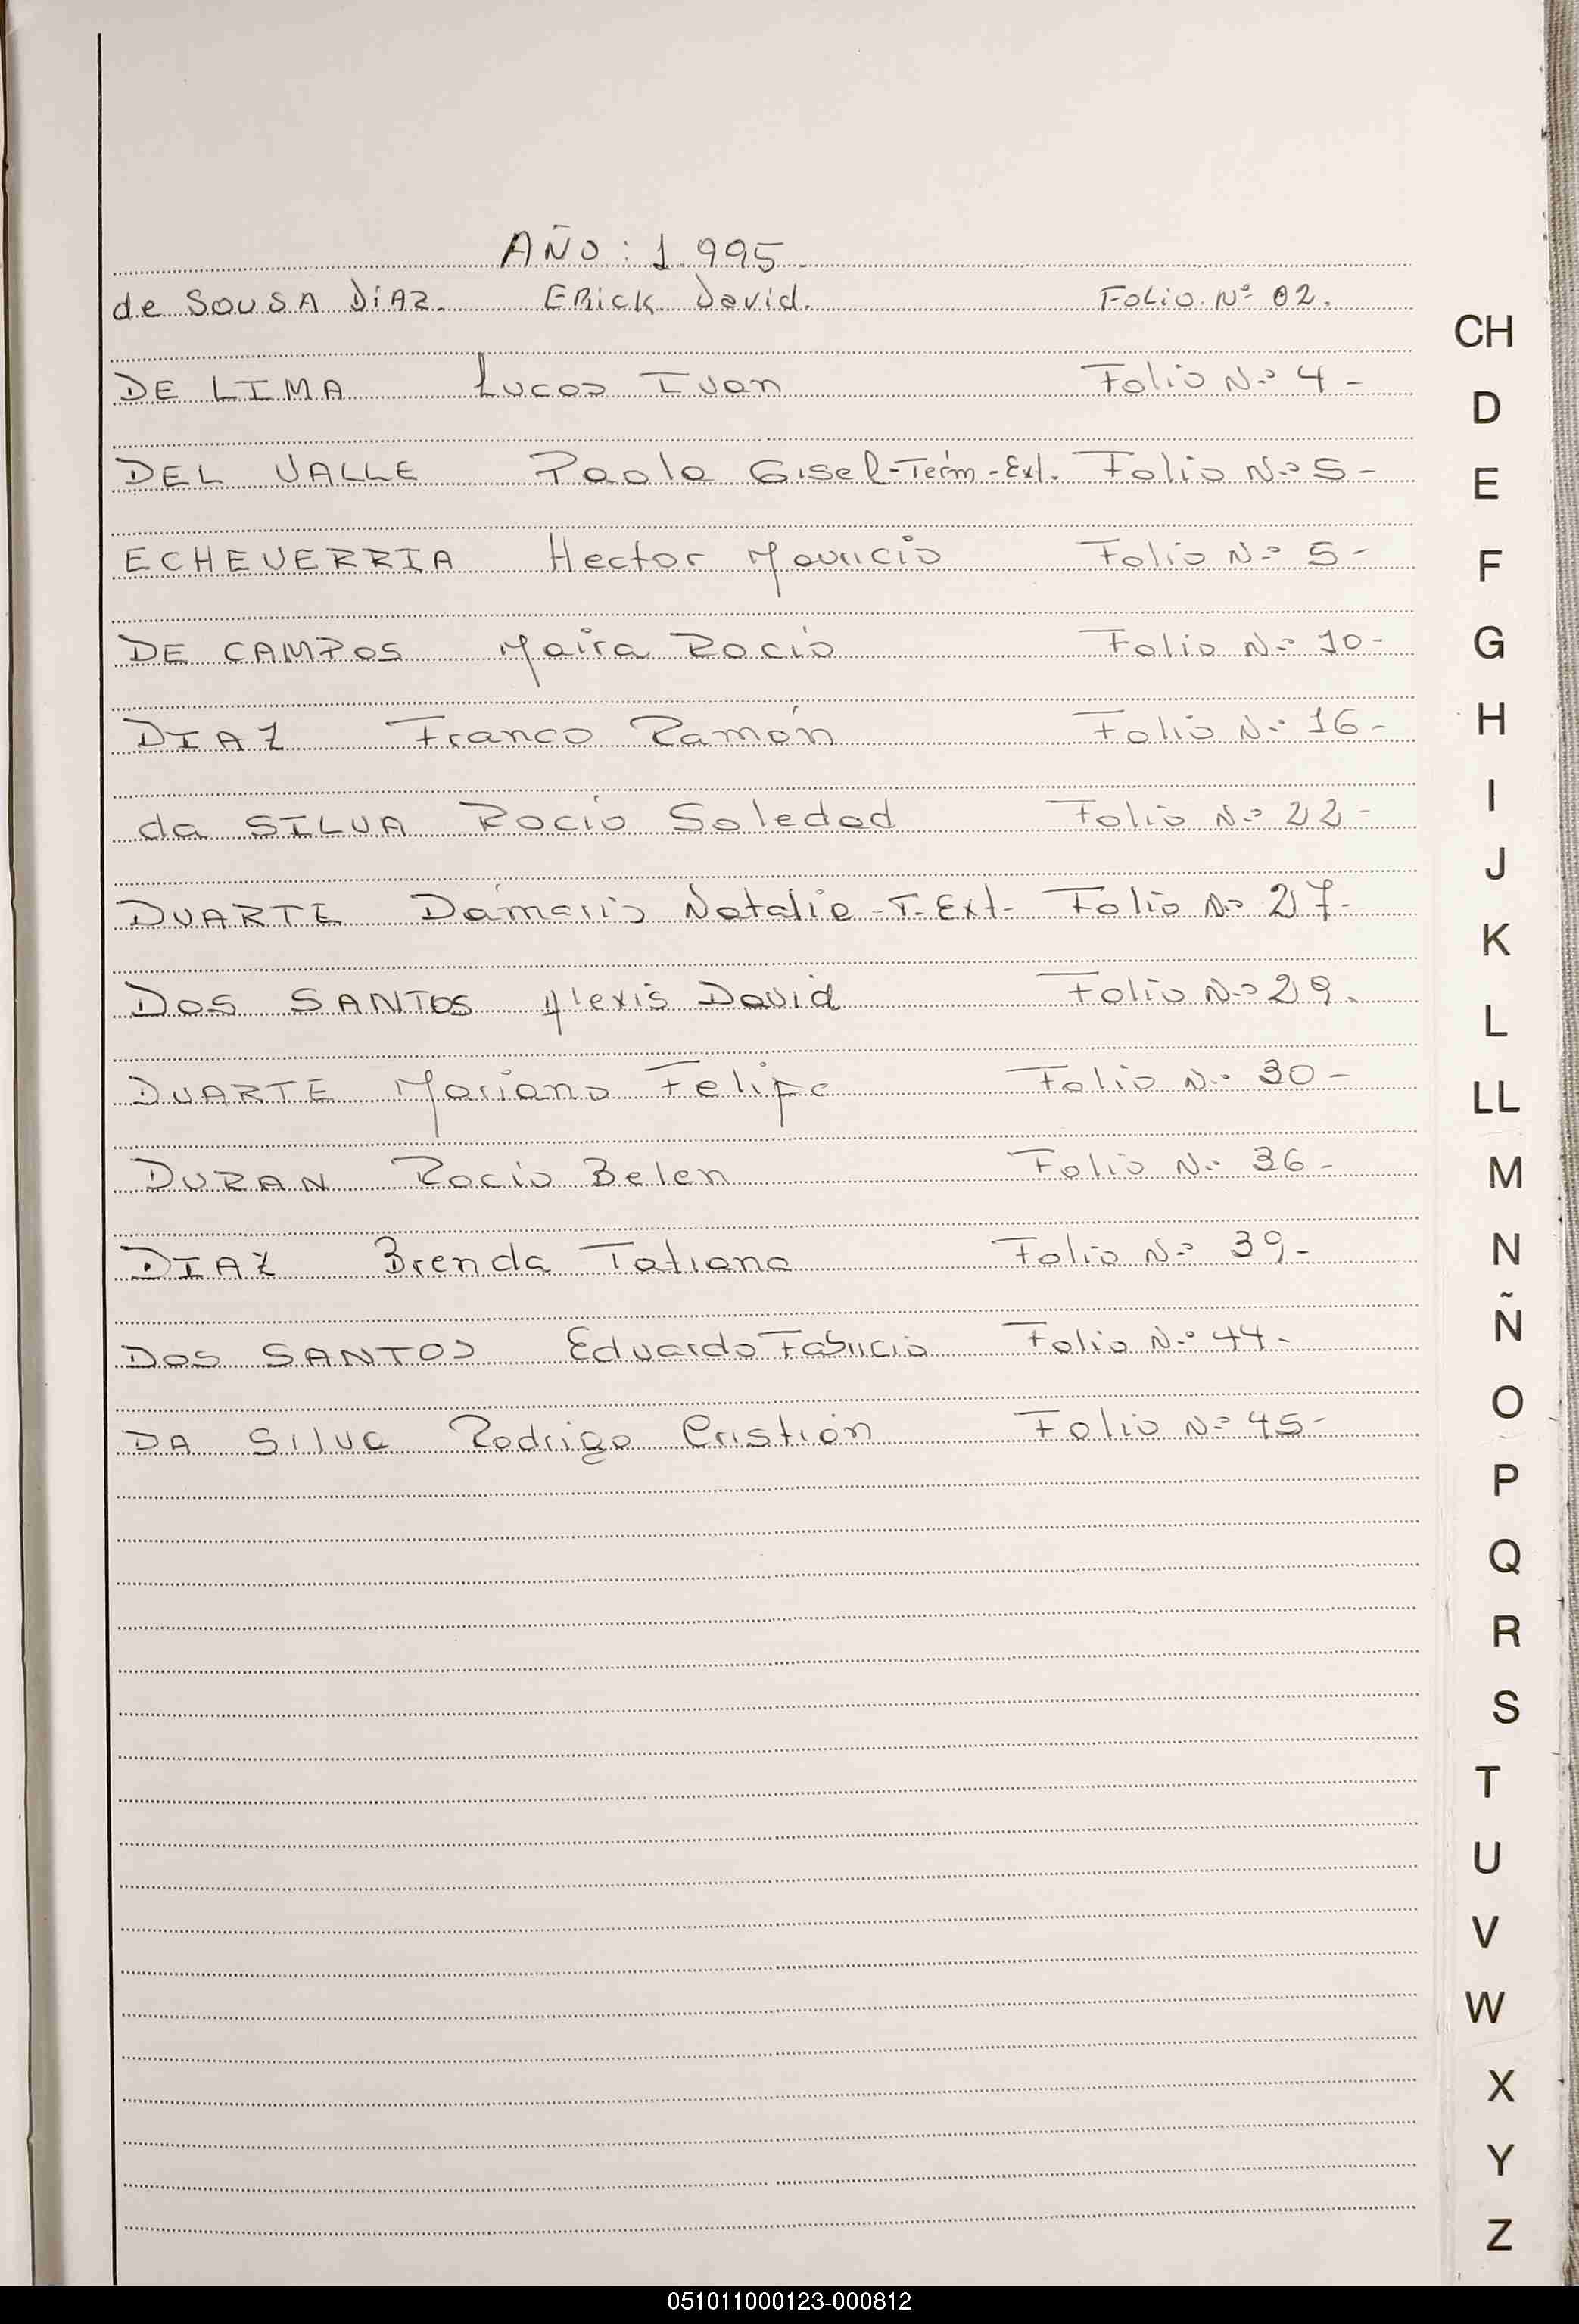 AÑO: 1.995.
de SOUSA DIAZ. ERick David. Folio. Nº 02.
DE LIMA Lucas Ivan Folio Nº 4-
DEL VALLE Paola Gisel-Term-Ext. Folio Nº 5-
ECHEVERRIA Hector Mauricio Folio Nº 5-
DE CAMPOS Maira Rocio Folio Nº 10-
DIAZ Franco Ramón Folio Nº 16-
da SILVA Rocío Soledad Folio Nº 22-
DUARTE Dámaris Natalia -T.Ext- Folio Nº 27-
DOS SANTOS Alexis David Folio Nº 29.
DUARTE Mariano Felipe Folio Nº 30-
DURAN Rocio Belen Folio Nº 36-
DIAZ Brenda Tatiana Folio Nº 39-
DOS SANTOS Eduardo Fabricio Folio Nº 44-
DA Silva Rodrigo Cristián Folio Nº 45-
CH
D
E
F
G
H
I
J
K
L
LL
M
N
Ñ
O
P
Q
R
S
T
U
V
W
X
Y
Z
051011000123-000812